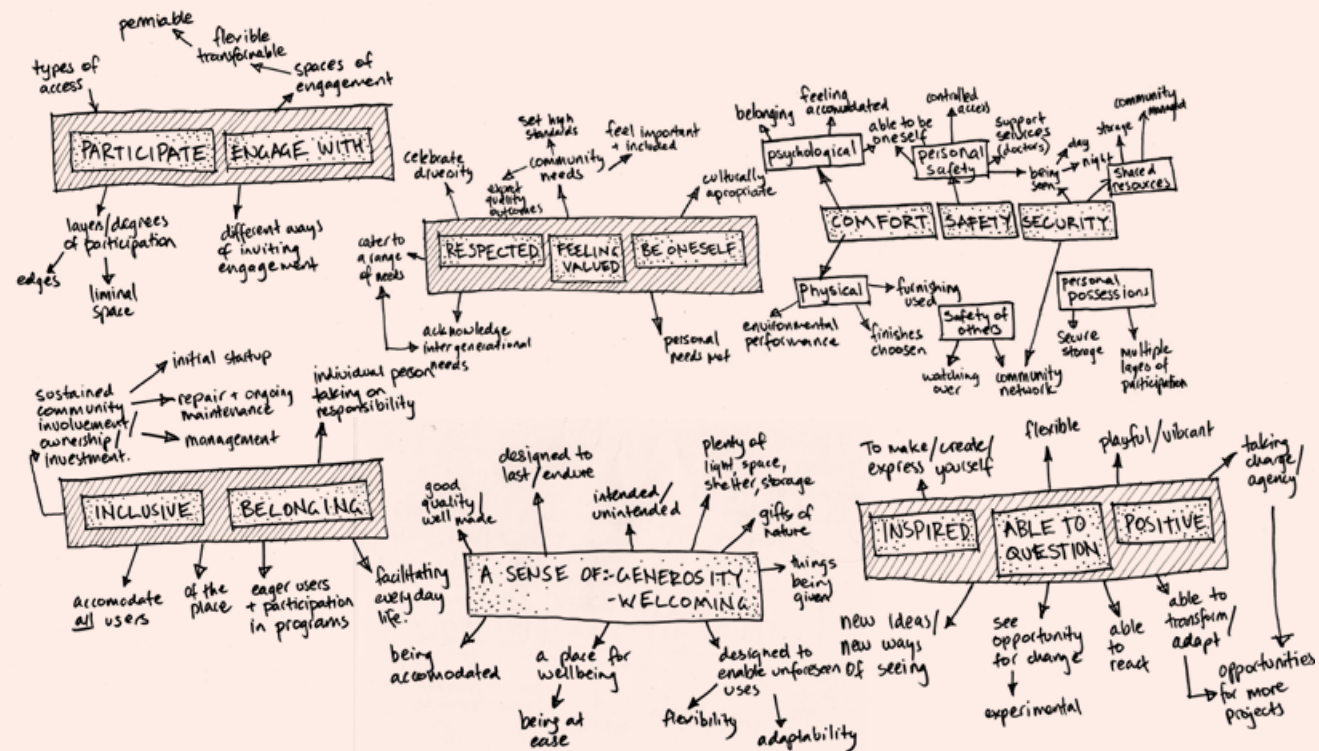 permiable
flexible
transformable
spaces of
engagement
types of
access
PARTICIPATE
ENGAGE WITH
layers/degrees
of participation
edges
liminal
space
different ways
of inviting
engagement
celebrate
diversity
set high
standards
community
needs
feel important
+ included
expect
quality
outcomes
culturally
apropriate
cater to
a range
of needs
RESPECTED
FEELING
VALUED
BE ONESELF
acknowledge
intergenerational
needs
personal
needs met
belonging
feeling
accomodated
psychological
able to be
oneself
controlled
access
personal
safety
support
services
(doctors)
being
seen
day
night
storage
community
managed
shared
resources
COMFORT
SAFETY
SECURITY
Physical
furnishing
used
environmental
performance
finishes
choosen
Safety of
others
watching
over
community
network
personal
possessions
secure
storage
multiple
layes of
participation
sustained
community
involvement/
ownership/
investment.
initial startup
repair + ongoing
maintenance
management
individual person
taking on
responsibility
INCLUSIVE
BELONGING
accomodate
all users
of the
place
eager users
+ participation
in programs
facilitating
everyday
life.
good
quality/
well made
designed to
last/endure
intended/
unintended
plenty of
light, space,
shelter, storage
gifts of
nature
things
being
given
A SENSE OF:-GENEROSITY
-WELCOMING
being
accomodated
a place for
wellbeing
being at
ease
designed to
enable unforeseen
uses
flexibility
adaptability
To make/create/
express yourself
flexible
playful/vibrant
taking
charge/
agency
INSPIRED
ABLE TO
QUESTION
POSITIVE
new ideas/
new ways
of seeing
see
opportunity
for change
experimental
able
to
react
able to
transform/
adapt
opportunities
for more
projects